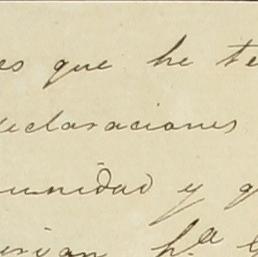 es que he te
declaraciones
unidad y q
pª